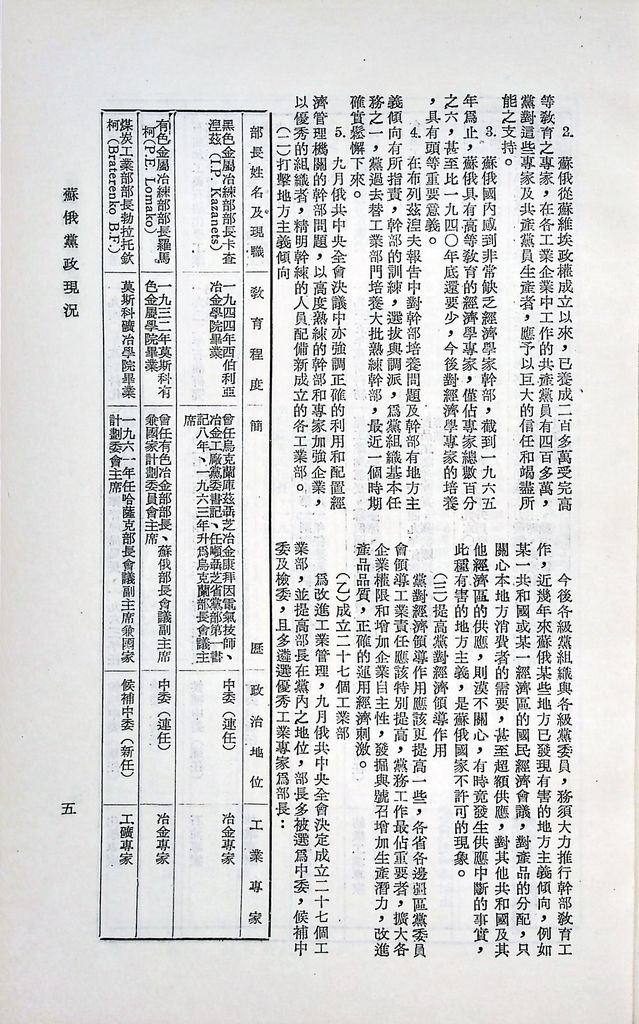 2. 蘇俄從蘇維埃政權成立以來，已養成二百多萬受完高
等敎育之專家，在各工業企業中工作的共產黨員有四百多萬，
黨對這些專家及共產黨員生產者，應予以巨大的信任和竭盡所
能之支持。
3. 蘇俄國內感到非常缺乏經濟學家幹部，截到一九六五
年爲止，蘇俄具有高等敎育的經濟學專家，僅佔專家總數百分
之六，甚至比一九四〇年底還要少，今後對經濟學專家的培養
，具有頭等重要意義。
4. 在布列茲湼夫報告中對幹部培養問題及幹部有地方主
義傾向有所指責，幹部的訓練，選拔與調派，爲黨組織基本任
務之一，黨過去替工業部門培養大批熟練幹部，最近一個時期
確實鬆懈下來。
5. 九月俄共中央全會決議中亦強調正確的利用和配置經
濟管理機關的幹部問題，以高度熟練的幹部和專家加強企業，
以優秀的組織者，精明幹練的人員配備新成立的各工業部。
(二)打擊地方主義傾向
今後各級黨組織與各級黨委員，務須大力推行幹部敎育工
作，近幾年來蘇俄某些地方已發現有害的地方主義傾向，例如
某一共和國或某一經濟區的國民經濟會議，對產品的分配，只
關心本地方消費者的需要，甚至超額供應，對其他共和國及其
他經濟區的供應，則漠不關心，有時竟發生供應中斷的事實，
此種有害的地方主義，是蘇俄國家不許可的現象。
(三)提高黨對經濟領導作用
黨對經濟領導作用應該更提高一些，各省各邊疆區黨委員
會領導工業責任應該特別提高，黨務工作最佔重要者，擴大各
企業權限和增加企業自主性，發掘與號召增加生產潛力，改進
產品品質，正確的運用經濟刺激。
(乙)成立二十七個工業部
爲改進工業管理，九月俄共中央全會決定成立二十七個工
業部，並提高部長在黨內之地位，部長多被選爲中委，候補中
委及檢委，且多遴選優秀工業專家爲部長：
部長姓名及現職
敎育程度
簡歷
政治地位
工業專家
黑色金屬冶練部部長卡査
湼茲(I.P. Kazanets)
一九四四年西伯利亞
冶金學院畢業
曾任烏克蘭庫茲聶芝冶金康拜因電氣技師、
冶金工廠黨委書記、任頓聶芝省黨部第一書
記八年、一九六三年升爲烏克蘭部長會議主
席
中委(連任)
冶金專家
有色金屬冶練部部長羅馬
柯(P.E. Lomako)
一九三二年莫斯科有
色金屬學院畢業
曾任有色冶金部部長、蘇俄部長會議副主席
兼國家計劃委員會主席
中委(連任)
冶金專家
煤炭工業部部長勃拉托欽
柯(Braterenko B.F.)
莫斯科礦冶學院畢業
一九六一年任哈薩克部長會議副主席兼國家
計劃委會主席
候補中委(新任)
工礦專家
蘇俄黨政現況
五